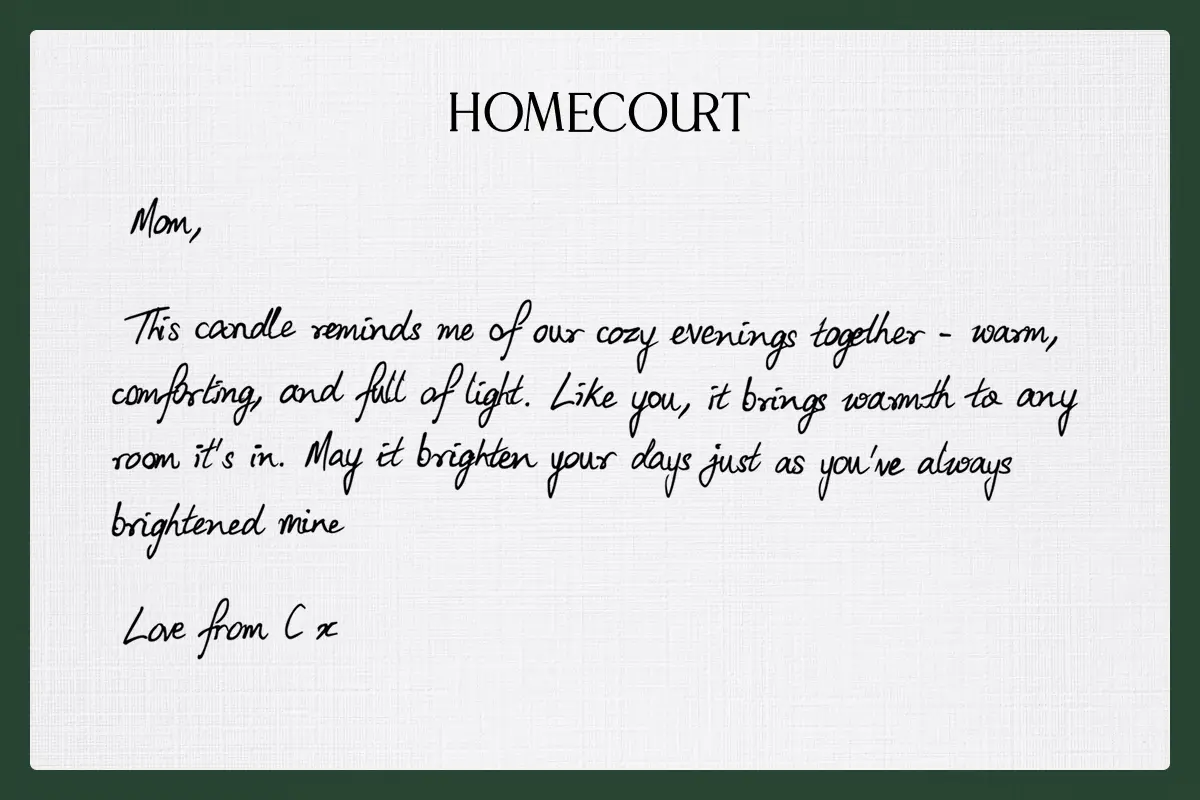 HOMECOURT
Mom,
This candle reminds me of our cozy evenings together - warm,
comforting, and full of light. Like you, it brings warmth to any
room it's in. May it brighten your days just as you've always
brightened mine
Love from C x